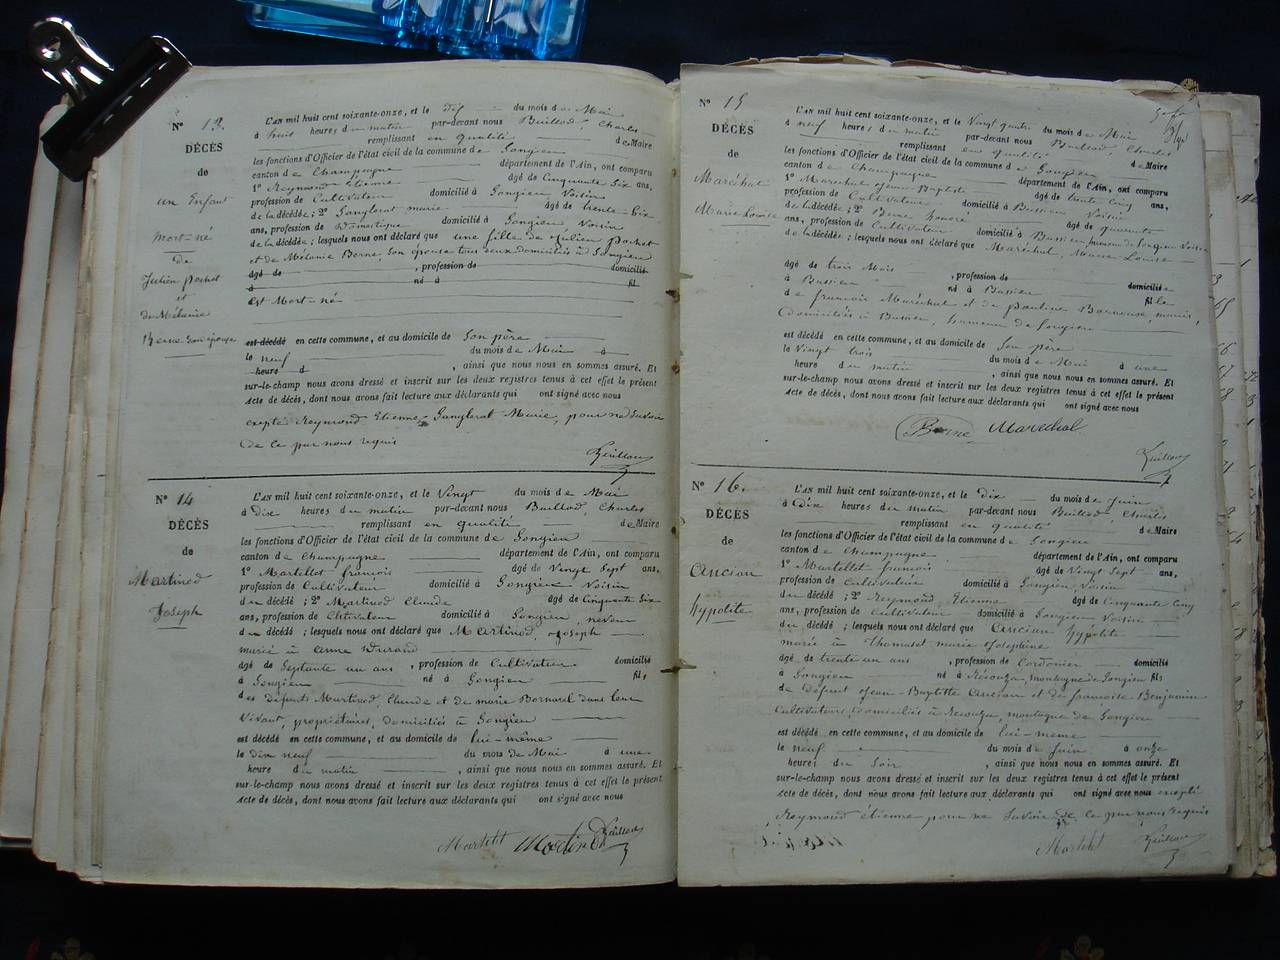 N° 13.
DÉCÈS
de
un Enfant
Mort-né
de
Julien pochet
et
de Mélanie
Berne son épouse
L'AN mil huit cent soixante-onze, et le dix du mois de Mai
à huit heures du matin par-devant nous Buillod, Charles
remplissant en qualité de Maire
les fonctions d'Officier de l'état civil de la commune de Songieu
canton de Champagne département de l'Ain, ont comparu
1° Reymond Etienne âgé de Cinquante Six ans,
profession de Cultivateur domicilié à Songieu Voisin
de la décédée; 2° Ganglerat marie âgé de trente-Six
ans, profession de Domestique domicilié à Songieu Voisin
de la décédée; lesquels nous ont déclaré que une fille de Julien pochet
et de Mélanie Berne, Son épouse tous deux domiciliés à Songieu
âgé de , profession de domicilié
à né à fil
Est Mort-né
est décédé en cette commune, et au domicile de Son père
le neuf du mois de Mai à
heure d , ainsi que nous nous en sommes assuré. Et
sur-le-champ nous avons dressé et inscrit sur les deux registres tenus à cet effet le présent
acte de décès, dont nous avons fait lecture aux déclarants qui ont signé avec nous
excepté Reymond Etienne, Ganglerat Marie, pour ne Savoir
de ce par nous requis
Buillod
N° 14
DÉCÈS
de
Martinod
Joseph
L'AN mil huit cent soixante-onze, et le Vingt du mois de Mai
à dix heures du matin par-devant nous Buillod, Charles
remplissant en qualité de Maire
les fonctions d'Officier de l'état civil de la commune de Songieu
canton de Champagne département de l'Ain, ont comparu
1° Martellet françois âgé de Vingt Sept ans,
profession de Cultivateur domicilié à Songieu Voisin
du décédé; 2° Martinod Claude âgé de Cinquante Six
ans, profession de Cultivateur domicilié à Songieu, neveu
du décédé; lesquels nous ont déclaré que Martinod, Joseph
marié à Durand
âgé de Septante un ans, profession de Cultivateur domicilié
à Songieu né à Songieu fils
des défunts Martinod, Claude et de marie Bornarel dans leur
Vivant, propriétaires, domiciliés à Songieu
est décédé en cette commune, et au domicile de lui-même
le dix neuf du mois de Mai à une
heure du matin , ainsi que nous nous en sommes assuré. Et
sur-le-champ nous avons dressé et inscrit sur les deux registres tenus à cet effet le présent
acte de décès, dont nous avons fait lecture aux déclarants qui ont signé avec nous
Martelet Martinod Buillod
N° 15
DÉCÈS
de
Maréchal
Marie Louise
L'AN mil huit cent soixante-onze, et le Vingt quatre du mois de Mai
à neuf heures du matin par-devant nous Buillod, Charles
remplissant en qualité de Maire
les fonctions d'Officier de l'état civil de la commune de Songieu
canton de Champagne département de l'Ain, ont comparu
1° Maréchal Jean Baptiste âgé de trente Cinq ans,
profession de Cultivateur domicilié à Bassieu Voisin
de la décédée; 2° Berne honoré âgé de quarante
ans, profession de Cultivateur domicilié à Bassieu, hameau de Songieu Voisin
de la décédée; lesquels nous ont déclaré que Maréchal, Marie Louise
âgé de trois Mois , profession de domiciliée
à Bassieu né à Bassieu fille
de françois Maréchal et de pauline mariés,
domiciliés à Bassieu, hameau de Songieu
est décédé en cette commune, et au domicile de Son père
le Vingt trois du mois de Mai à une
heure du matin , ainsi que nous nous en sommes assuré. Et
sur-le-champ nous avons dressé et inscrit sur les deux registres tenus à cet effet le présent
acte de décès, dont nous avons fait lecture aux déclarants qui ont signé avec nous
Berne Maréchal
Buillod
N° 16.
DÉCÈS
de
Ancian
hypolite
L'AN mil huit cent soixante-onze, et le dix du mois de Juin
à dix heures du matin par-devant nous Buillod, Charles
remplissant en qualité de Maire
les fonctions d'Officier de l'état civil de la commune de Songieu
canton de Champagne département de l'Ain, ont comparu
1° Martellet françois âgé de Vingt Sept ans,
profession de Cultivateur domicilié à Songieu, Voisin
du décédé; 2° Reymond, Etienne âgé de Cinquante Cinq
ans, profession de Cultivateur domicilié à Songieu Voisin
du décédé; lesquels nous ont déclaré que Ancian hypolite
marié à Thomasset marie Josephine
âgé de trente un ans , profession de Cordonier domicilié
à Songieu né à montagne de Songieu fils
de Défunt Jean-Baptiste Ancian et de françoise Benjamin
Cultivateurs, domiciliés à montagne de Songieu
est décédé en cette commune, et au domicile de lui-même
le neuf du mois de Juin à onze
heures du Soir , ainsi que nous nous en sommes assuré. Et
sur-le-champ nous avons dressé et inscrit sur les deux registres tenus à cet effet le présent
acte de décès, dont nous avons fait lecture aux déclarants qui ont signé avec nous excepté
Reymond étienne pour ne Savoir de ce par nous requis
Martelet Buillod